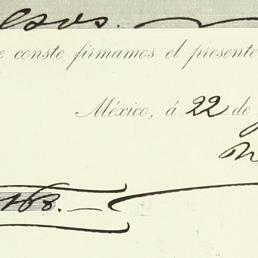 esos.
e conste firmamos el presente
México, á 22 de
168.